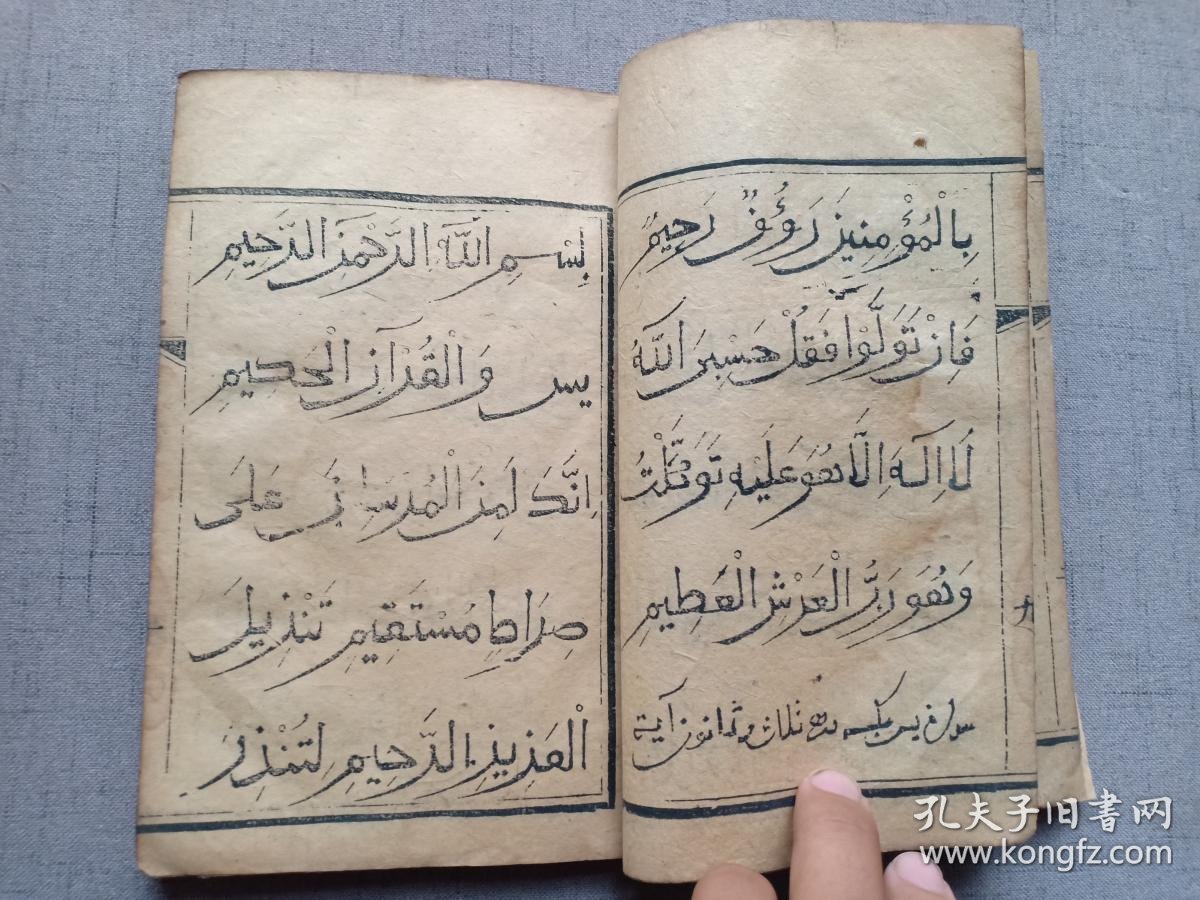 بِالْمُؤْمِنِينَ رَؤُفٌ رَحِيمٌ
فَاِنْ تَوَلَّوْا فَقُلْ حَسْبِىَ اللّٰهُ
لَا اِلٰهَ اِلَّا هُوَ عَلَيْهِ تَوَكَّلْتُ
وَهُوَ رَبُّ الْعَرْشِ الْعَظِيمِ
يس مكية وهى ثلاث وثمانون آية
بِسْمِ اللّٰهِ الرَّحْمٰنِ الرَّحِيمِ
يس وَالْقُرْآنِ الْحَكِيمِ
اِنَّكَ لَمِنَ الْمُرْسَلِينَ عَلَى
صِرَاطٍ مُسْتَقِيمٍ تَنْزِيلَ
الْعَزِيزِ الرَّحِيمِ لِتُنْذِرَ
九
孔夫子旧書网
www.kongfz.com